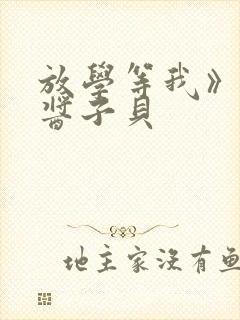 放學等我》
醬子貝
地主家沒有鱼